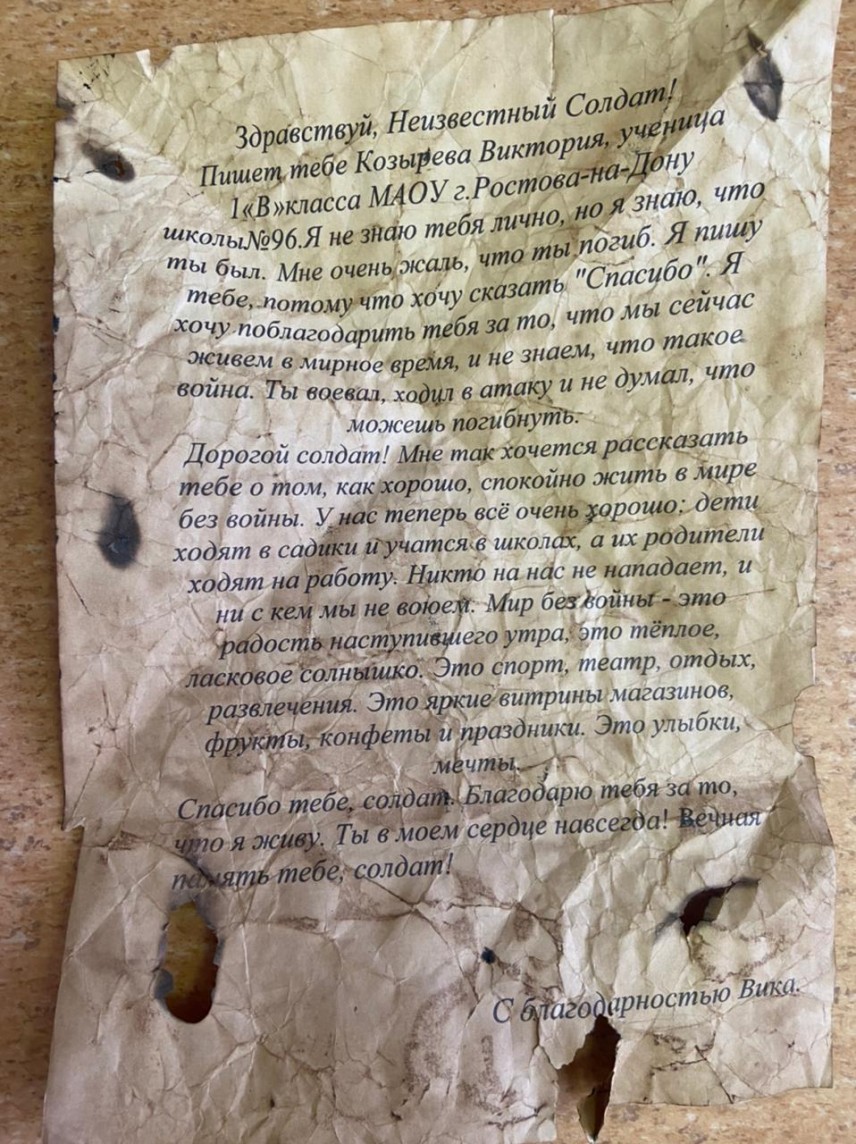 Здравствуй, Неизвестный Солдат!
Пишет тебе Козырева Виктория, ученица
1«В»класса МАОУ г.Ростова-на-Дону
школы№96.Я не знаю тебя лично, но я знаю, что
ты был. Мне очень жаль, что ты погиб. Я пишу
тебе, потому что хочу сказать "Спасибо". Я
хочу поблагодарить тебя за то, что мы сейчас
живем в мирное время, и не знаем, что такое
война. Ты воевал, ходил в атаку и не думал, что
можешь погибнуть.
Дорогой солдат! Мне так хочется рассказать
тебе о том, как хорошо, спокойно жить в мире
без войны. У нас теперь всё очень хорошо: дети
ходят в садики и учатся в школах, а их родители
ходят на работу. Никто на нас не нападает, и
ни с кем мы не воюем. Мир без войны - это
радость наступившего утра, это тёплое,
ласковое солнышко. Это спорт, театр, отдых,
развлечения. Это яркие витрины магазинов,
фрукты, конфеты и праздники. Это улыбки,
мечты.
Спасибо тебе, солдат. Благодарю тебя за то,
что я живу. Ты в моем сердце навсегда! Вечная
память тебе, солдат!
С благодарностью Вика.